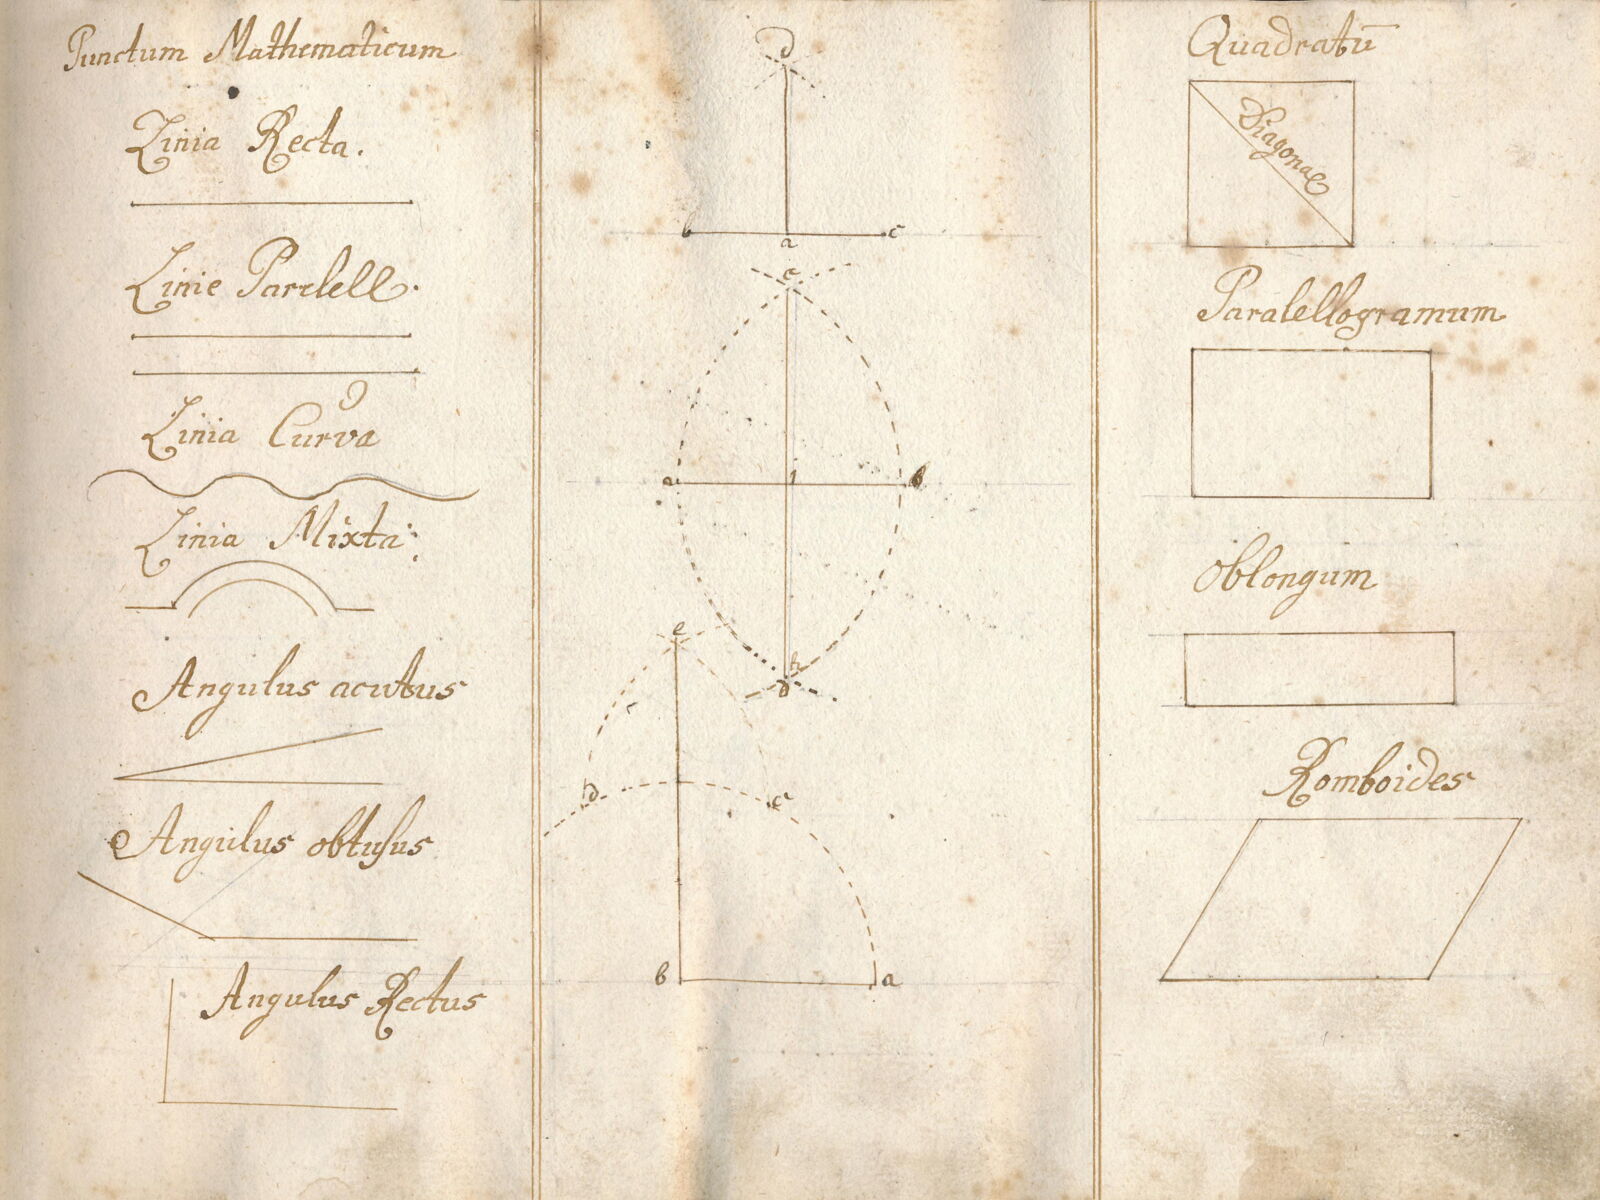 Punctum Mathematicum
Linia Recta.
Linie Parelell.
Linia Curva
Linia Mixta
Angulus acutus
Angulus obtusus
Angulus Rectus
d
b
a
c
c
a
1
b
d
e
d
c
b
a
Quadratū
Diagonae
Paralellogramum
oblongum
Romboides